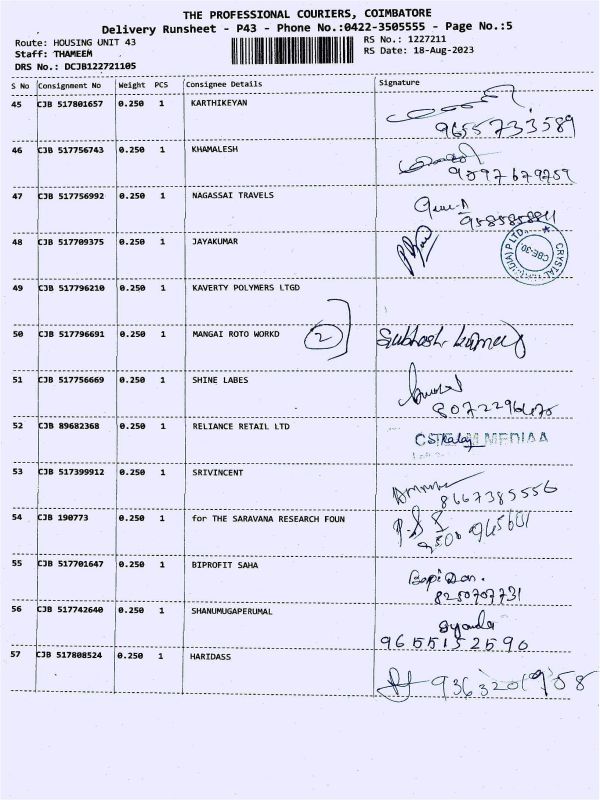 THE PROFESSIONAL COURIERS, COIMBATORE
Delivery Runsheet - P43 - Phone No.:0422-3505555 - Page No.:5
Route: HOUSING UNIT 43
RS No.: 1227211
Staff: THAMEEM
RS Date: 18-Aug-2023
DRS No.: DCJB122721105
S No Consignment No Weight PCS Consignee Details Signature
45 CJB 517801657 0.250 1 KARTHIKEYAN
9655733589
46 CJB 517756743 0.250 1 KHAMALESH
47 CJB 517756992 0.250 1 NAGASSAI TRAVELS
48 CJB 517709375 0.250 1 JAYAKUMAR
CRYSTAL
CBE-30
49 CJB 517796210 0.250 1 KAVERTY POLYMERS LTGD
50 CJB 517796691 0.250 1 MANGAI ROTO WORKD 2 Subhash kumar
51 CJB 517756669 0.250 1 SHINE LABES
52 CJB 89682368 0.250 1 RELIANCE RETAIL LTD
MEDIAA
53 CJB 517399912 0.250 1 SRIVINCENT
8667385556
54 CJB 190773 0.250 1 for THE SARAVANA RESEARCH FOUN
55 CJB 517701647 0.250 1 BIPROFIT SAHA
8250707731
56 CJB 517742640 0.250 1 SHANUMUGAPERUMAL
9655152590
57 CJB 517808524 0.250 1 HARIDASS